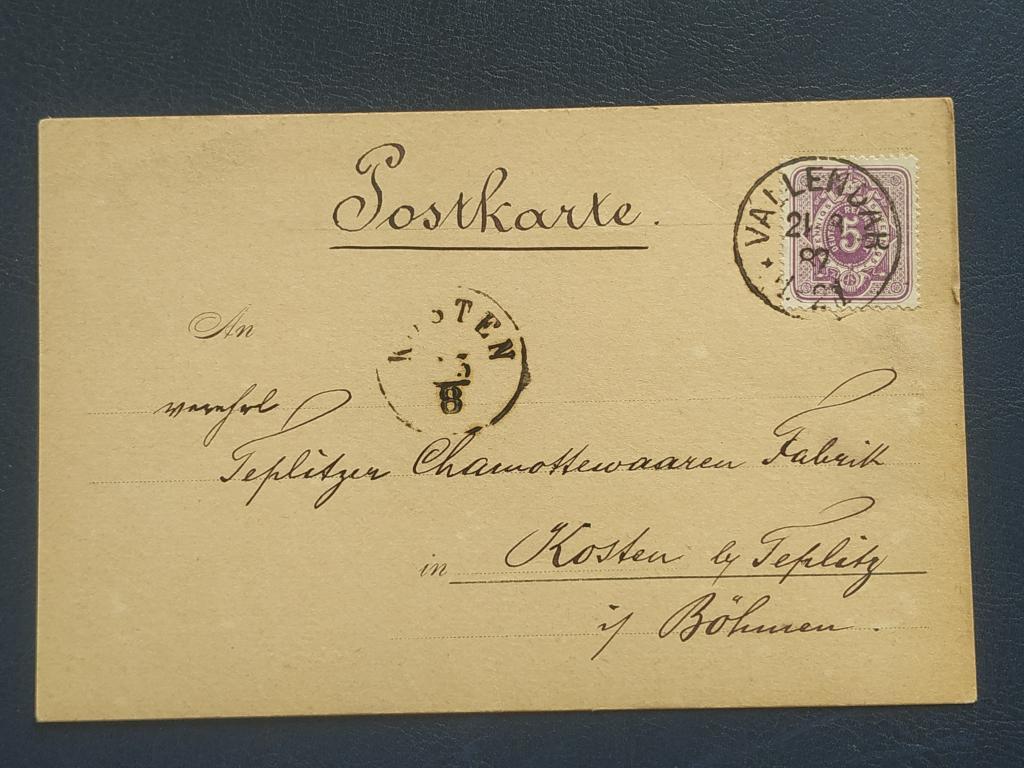 Postkarte.
VALLENDAR
21 8
87
5
KOSTEN
8
An
verehrl
Teplitzer Chamottewaaren Fabrik
in Kosten b/ Teplitz
i/ Böhmen.